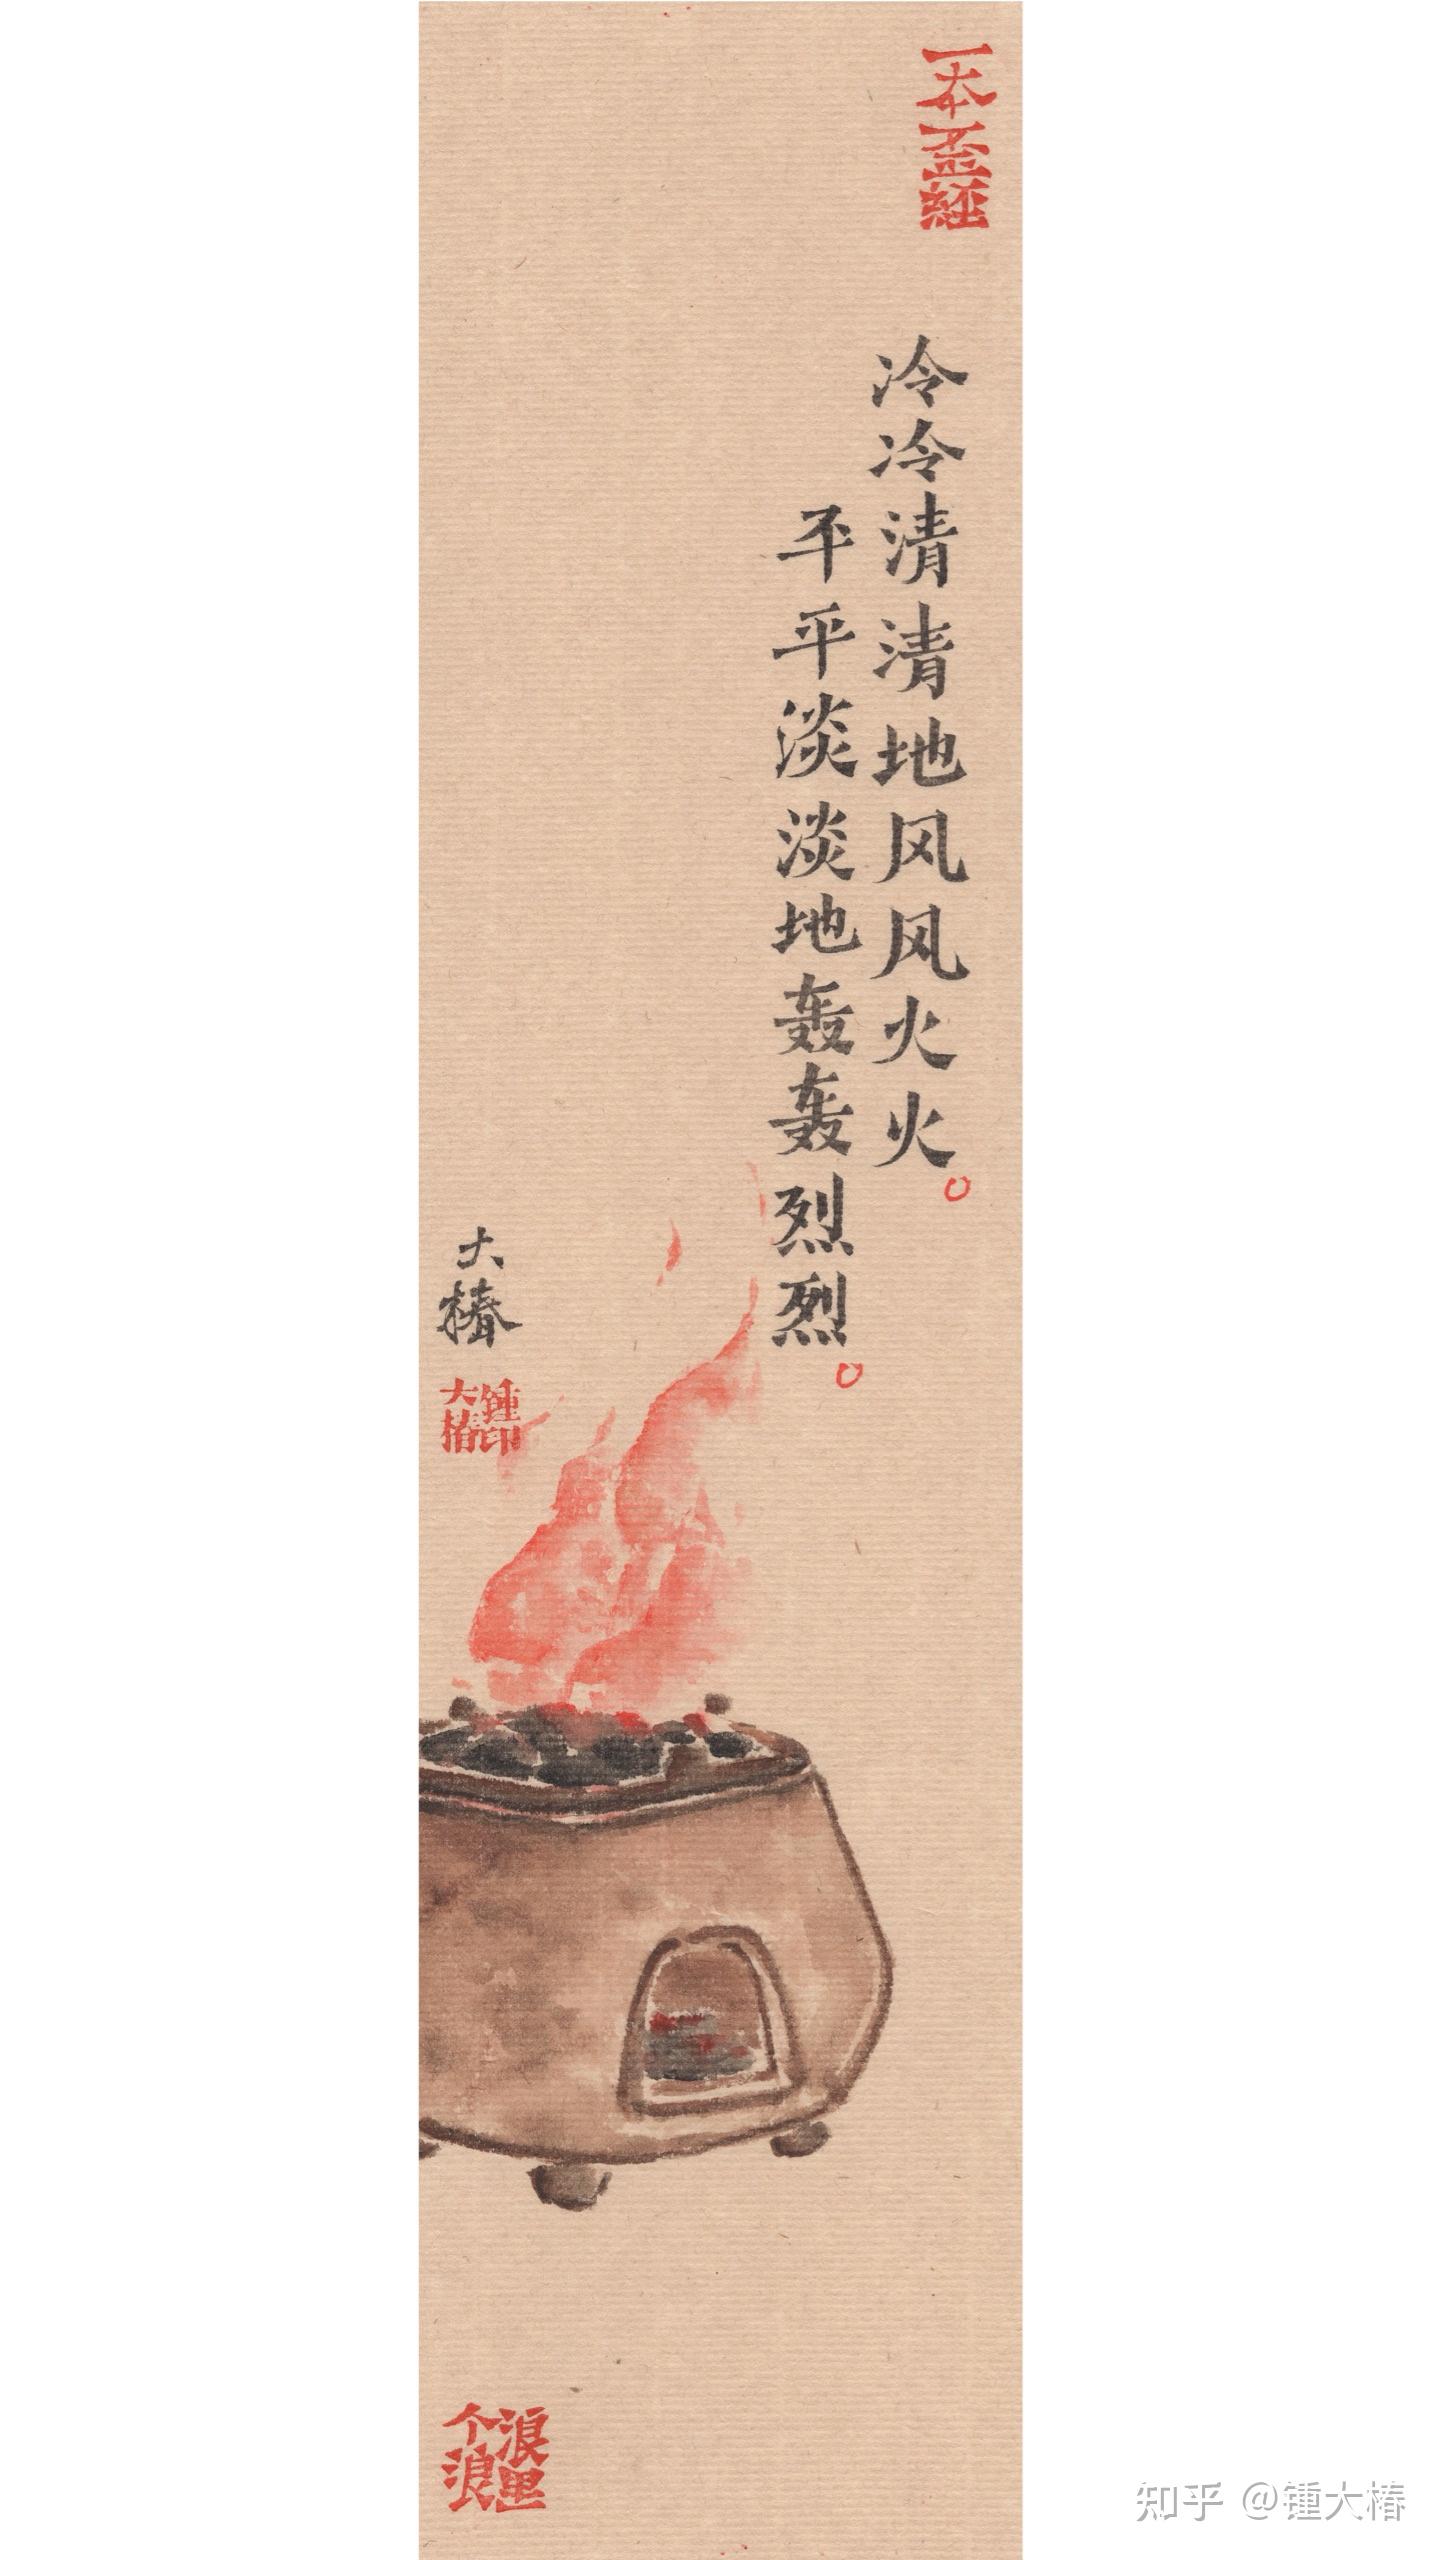 一本歪经
冷冷清清地风风火火。
平平淡淡地轰轰烈烈。
大椿
锺印
大椿
浪里
个浪
知乎 @锺大椿